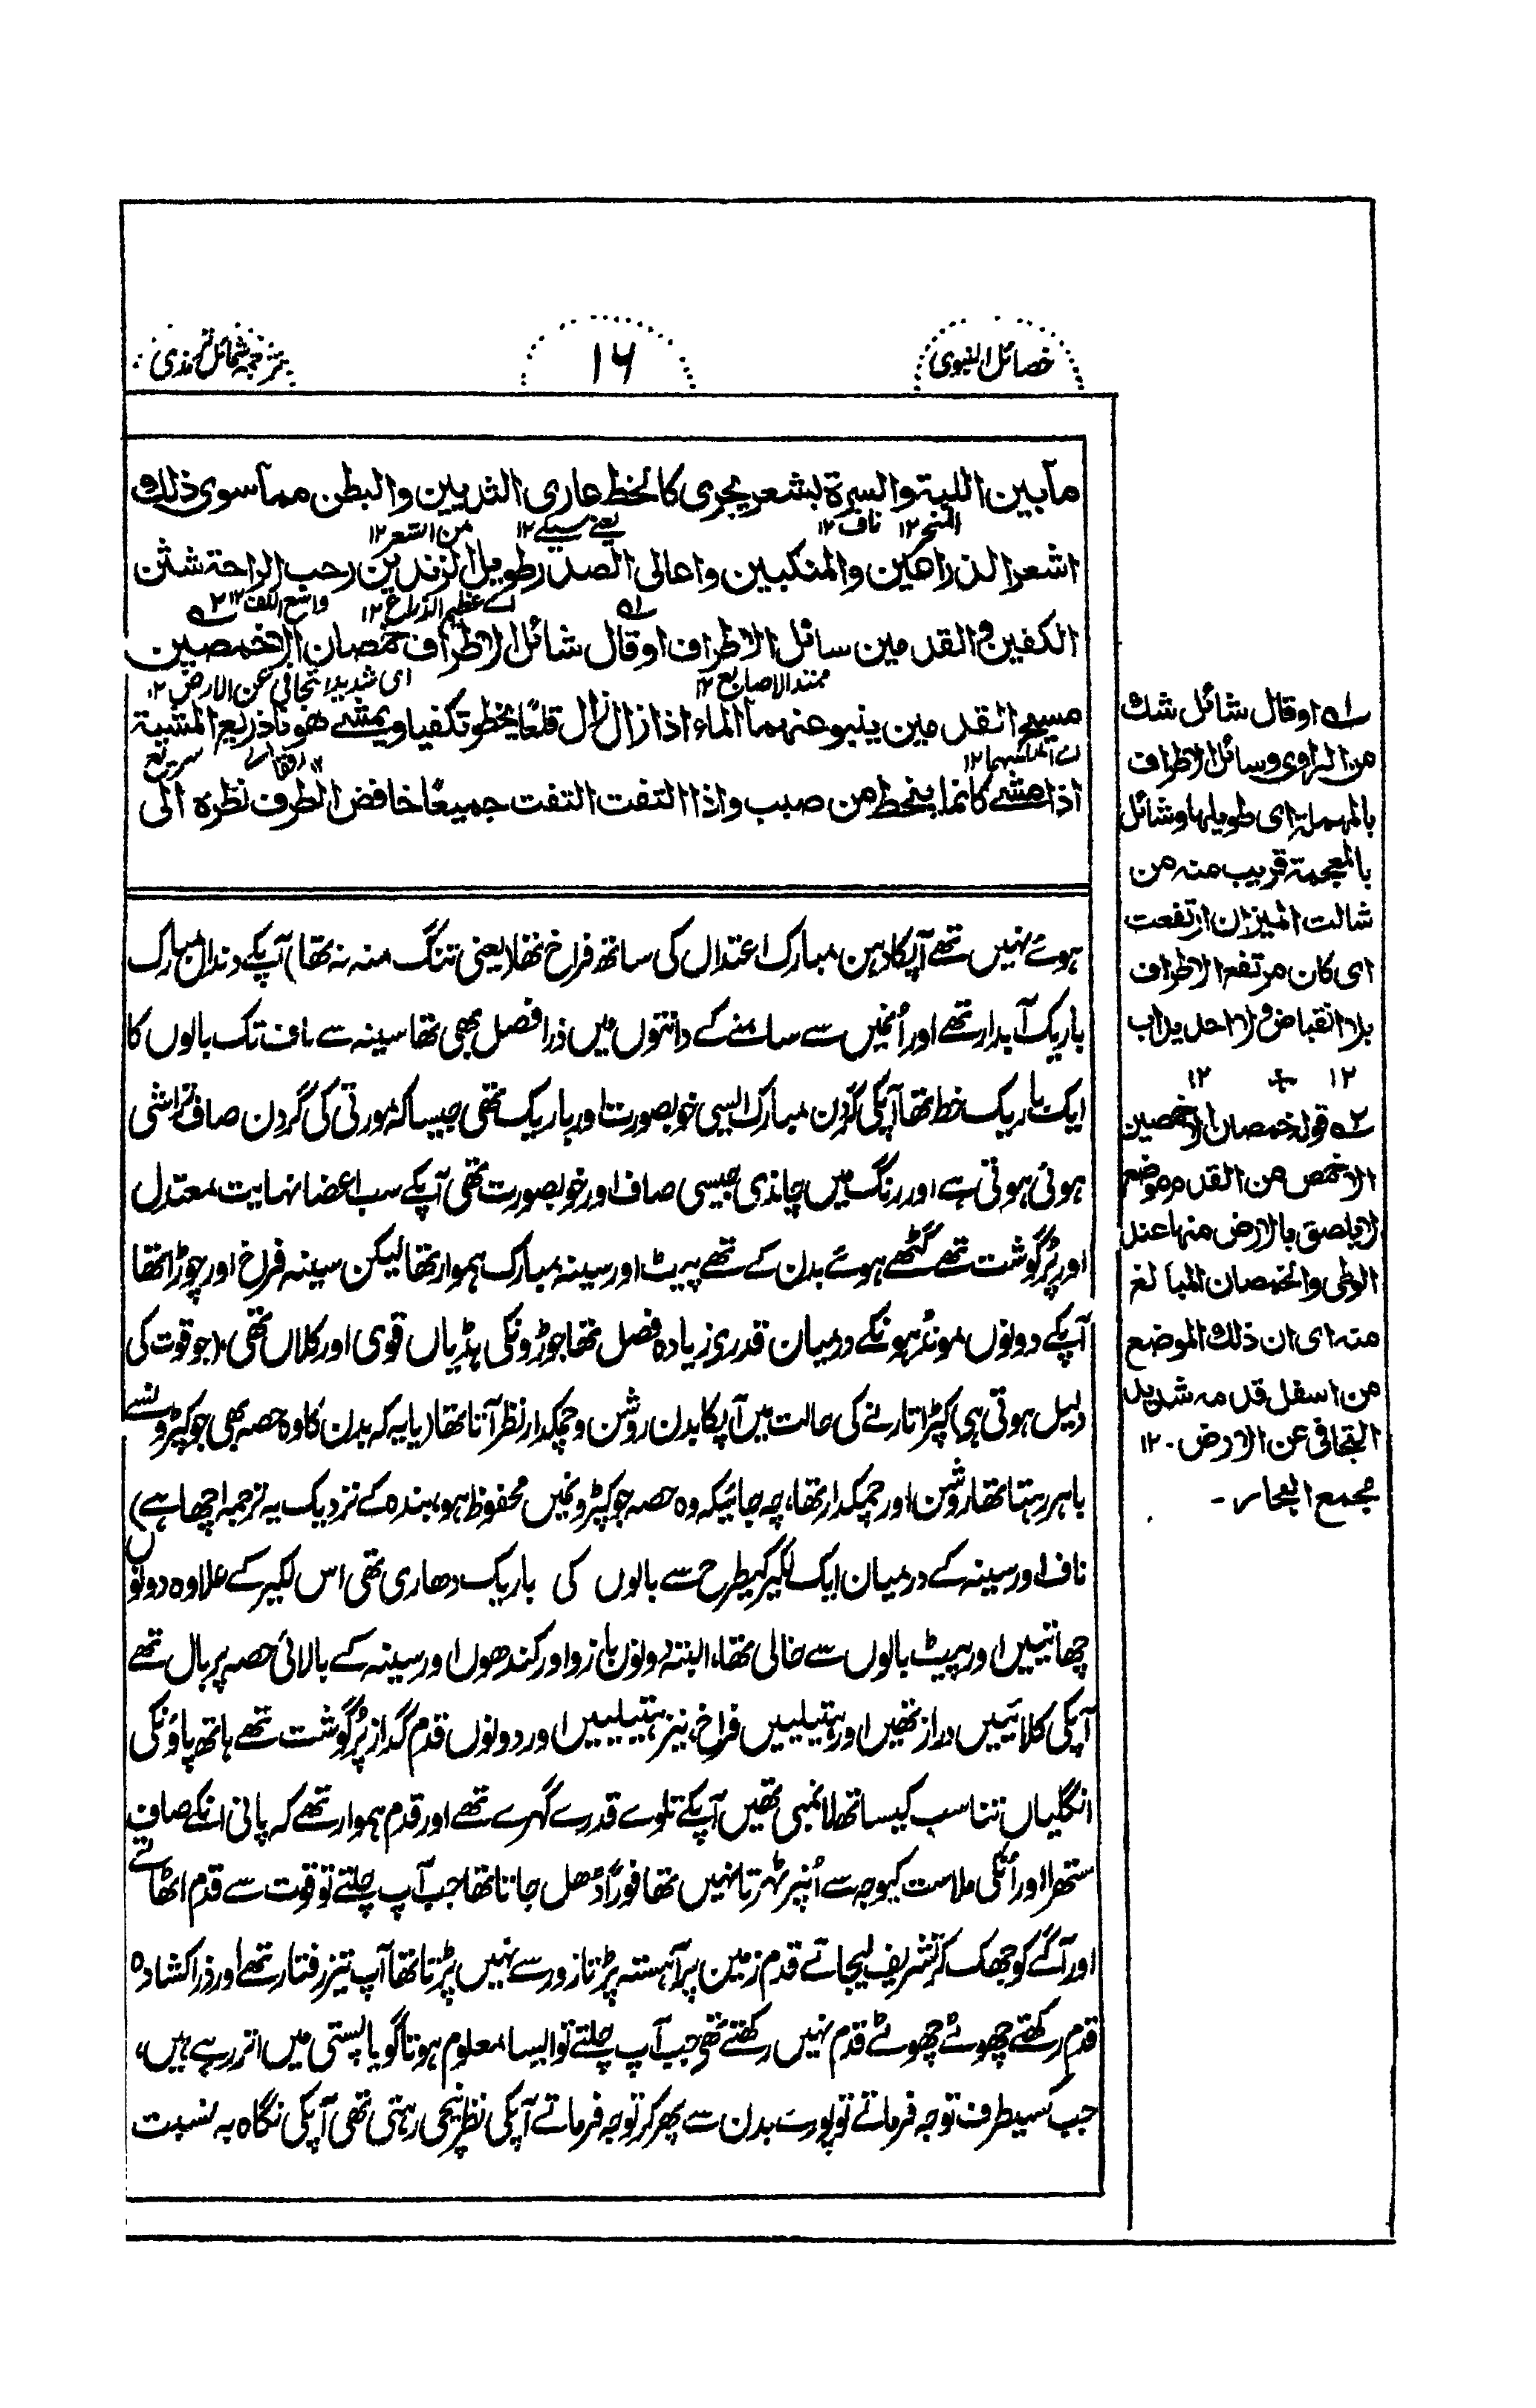 خصائل النبوی
۱۶
ترجمہ شمائل ترمذی
مابین اللبۃ والسرۃ بشعر یجری کالخط عاری الثدیین والبطن مما سوی ذلك
المنحر ۱۲ ناف ۱۲ یعنے سیکے ۱۲ من الشعر ۱۲
اشعر الذراعین والمنکبین واعالی الصدر طویل الزندین رحب الراحۃ شثن
اے عظیم الذراع ۱۲ واسع الکف ۱۲
الکفین والقدمین سائل الاطراف اوقال شائل الاطراف خمصان الاخمصین
ممتد الاصابع ۱۲ ای شدید التجافی عن الارض ۱۲
مسیح القدمین ینبو عنهما الماء اذا زال زال قلعًا یخطو تکفیا ویمشے هونا ذریع المشیۃ
سریع
اذا مشے کانما ینحط من صبب واذا التفت التفت جمیعًا خافض الطرف نظرہ الی
ہوئے نہیں تھے آپکا دہن مبارک اعتدال کی ساتھ فراخ تھا (یعنی تنگ منہ نہ تھا) آپکے دندان مبارک
باریک آبدار تھے اور اُنمیں سے سامنے کے دانتوں میں ذرا فصل بھی تھا سینہ سے ناف تک بالوں کا
ایک باریک خط تھا آپکی گردن مبارک ایسی خوبصورت اور باریک تھی جیسا کہ مورتی کی گردن صاف تراشی
ہوئی ہوتی ہے اور رنگ میں چاندی جیسی صاف اور خوبصورت تھی آپکے سب اعضا نہایت معتدل
اور پُر گوشت تھے گٹھے ہوئے بدن کے تھے پیٹ اور سینہ مبارک ہموار تھا لیکن سینہ فراخ اور چوڑا تھا
آپکے دونوں مونڈہونکے درمیان قدری زیادہ فصل تھا جوڑونکی ہڈیاں قوی اور کلاں تھی (جو قوت کی
دلیل ہوتی ہی) کپڑا اتارنے کی حالت میں آپکا بدن روشن و چمکدار نظر آتا تھا (یا یہ کہ بدن کا وہ حصہ بھی جو کپڑونسے
باہر رہتا تھا روشن اور چمکدار تھا، چہ جائیکہ وہ حصہ جو کپڑونمیں محفوظ ہو بندہ کے نزدیک یہ ترجمہ اچھا ہے)
ناف اور سینہ کے درمیان ایک لکیر کیطرح سے بالوں کی باریک دھاری تھی اس لکیر کے علاوہ دونوں
چھاتییں اور پیٹ بالوں سے خالی تھا، البتہ دونوں بازو اور کندھوں اور سینہ کے بالائی حصہ پر بال تھے
آپکی کلائییں دراز تھیں اور ہتیلییں فراخ، نیز ہتیلییں اور دونوں قدم گداز پُر گوشت تھے ہاتھ پاؤنکی
انگلیاں تناسب کیساتھ لانبی تھیں آپکے تلوے قدرے گہرے تھے اور قدم ہموار تھے کہ پانی انکے صاف
ستھرا اور اُنکی ملاست کیوجہ سے اُنپر ٹہرتا نہیں تھا فورًا ڈھل جاتا تھا جب آپ چلتے تو قوت سے قدم اٹھاتے
اور آگے کو جھک کر تشریف لیجاتے قدم زمین پر آہستہ پڑتا زور سے نہیں پڑتا تھا آپ تیز رفتار تھے اور ذرا کشادہ
قدم رکھتے چھوٹے چھوٹے قدم نہیں رکھتے تھی جب آپ چلتے تو ایسا معلوم ہوتا گویا پستی میں اتر رہے ہیں،
جب کسیطرف توجہ فرماتے تو پورے بدن سے پھر کر توجہ فرماتے آپکی نظر نیچی رہتی تھی آپکی نگاہ بہ نسبت
لہ اوقال شائل شك
من الراوی وسائل الاطراف
بالمهملۃ ای طویلها وشائل
بالمعجمۃ قریب منہ من
شالت المیزان ارتفعت
ای کان مرتفع الاطراف
بلا انقباض ولا احدیداب
۱۲ ۱۲
۲ہ قولہ خمصان الاخمصین
الاخمص من القدم موضع
لا یلصق بالارض منها عند
الوطی والخمصان المبالغ
منہ ای ان ذلك الموضع
من اسفل قدمہ شدید
التجافی عن الارض۔ ۱۲
مجمع البحار۔